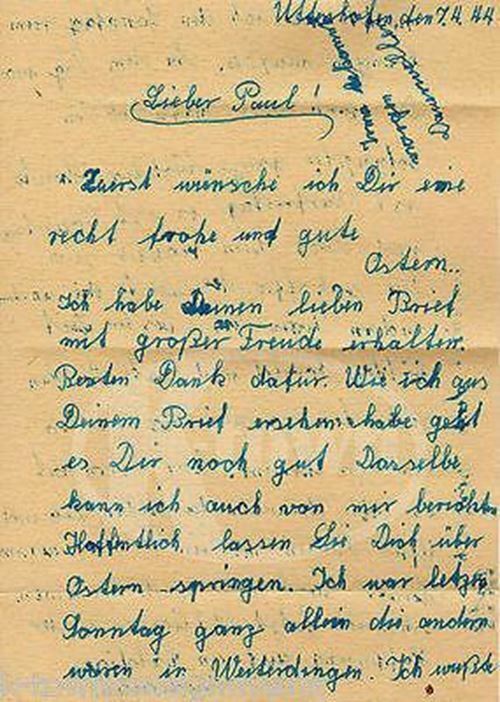 Uttenhofen, den 7.4.44
Lieber Paul!
Zuerst wünsche ich Dir eine
recht frohe und gute
Ostern..
Ich habe Deinen lieben Brief
mit großer Freude erhalten.
Besten Dank dafür. Wie ich aus
Deinem Brief ersehen habe geht
es Dir noch gut Dasselbe
kann ich auch von mir berichten
Hoffentlich lassen Sie Dich über
Ostern springen. Ich war letzen
Sonntag ganz allein die andern
waren in Weiterdingen. Ich wußte